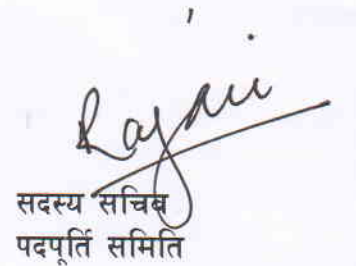 Rajni
सदस्य सचिव
पदपूर्ति समिति